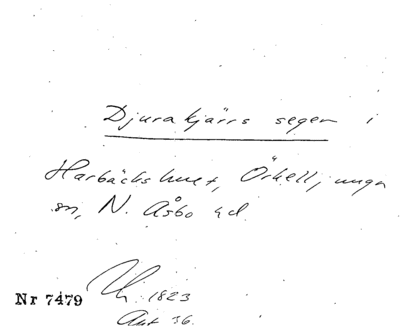 Djurakjärrs segen i
Harbäckshult, Örkelljunga
sn, N. Åsbo hd.
Nr 7479
1823
Akt 36.